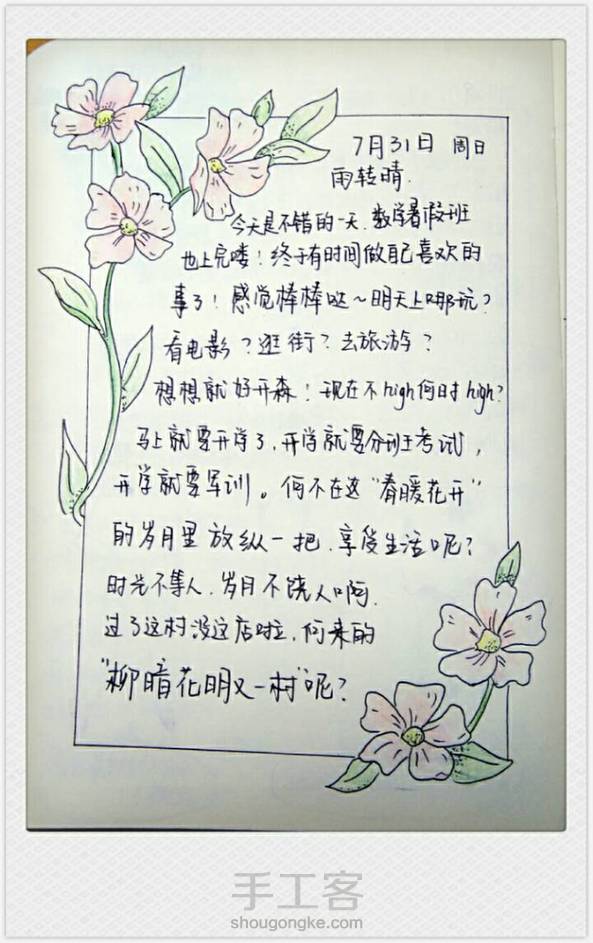 7月31日 周日
雨转晴.
今天是不错的一天.数学暑假班
也上完喽！终于有时间做自己喜欢的
事了！感觉棒棒哒～明天上哪玩？
看电影？逛街？去旅游？
想想就好开森！现在不high何时high？
马上就要开学了，开学就要分班考试，
开学就要军训。何不在这“春暖花开”
的岁月里放纵一把，享受生活呢？
时光不等人，岁月不饶人啊.
过了这村没这店啦，何来的
“柳暗花明又一村”呢？
手工客
shougongke.com